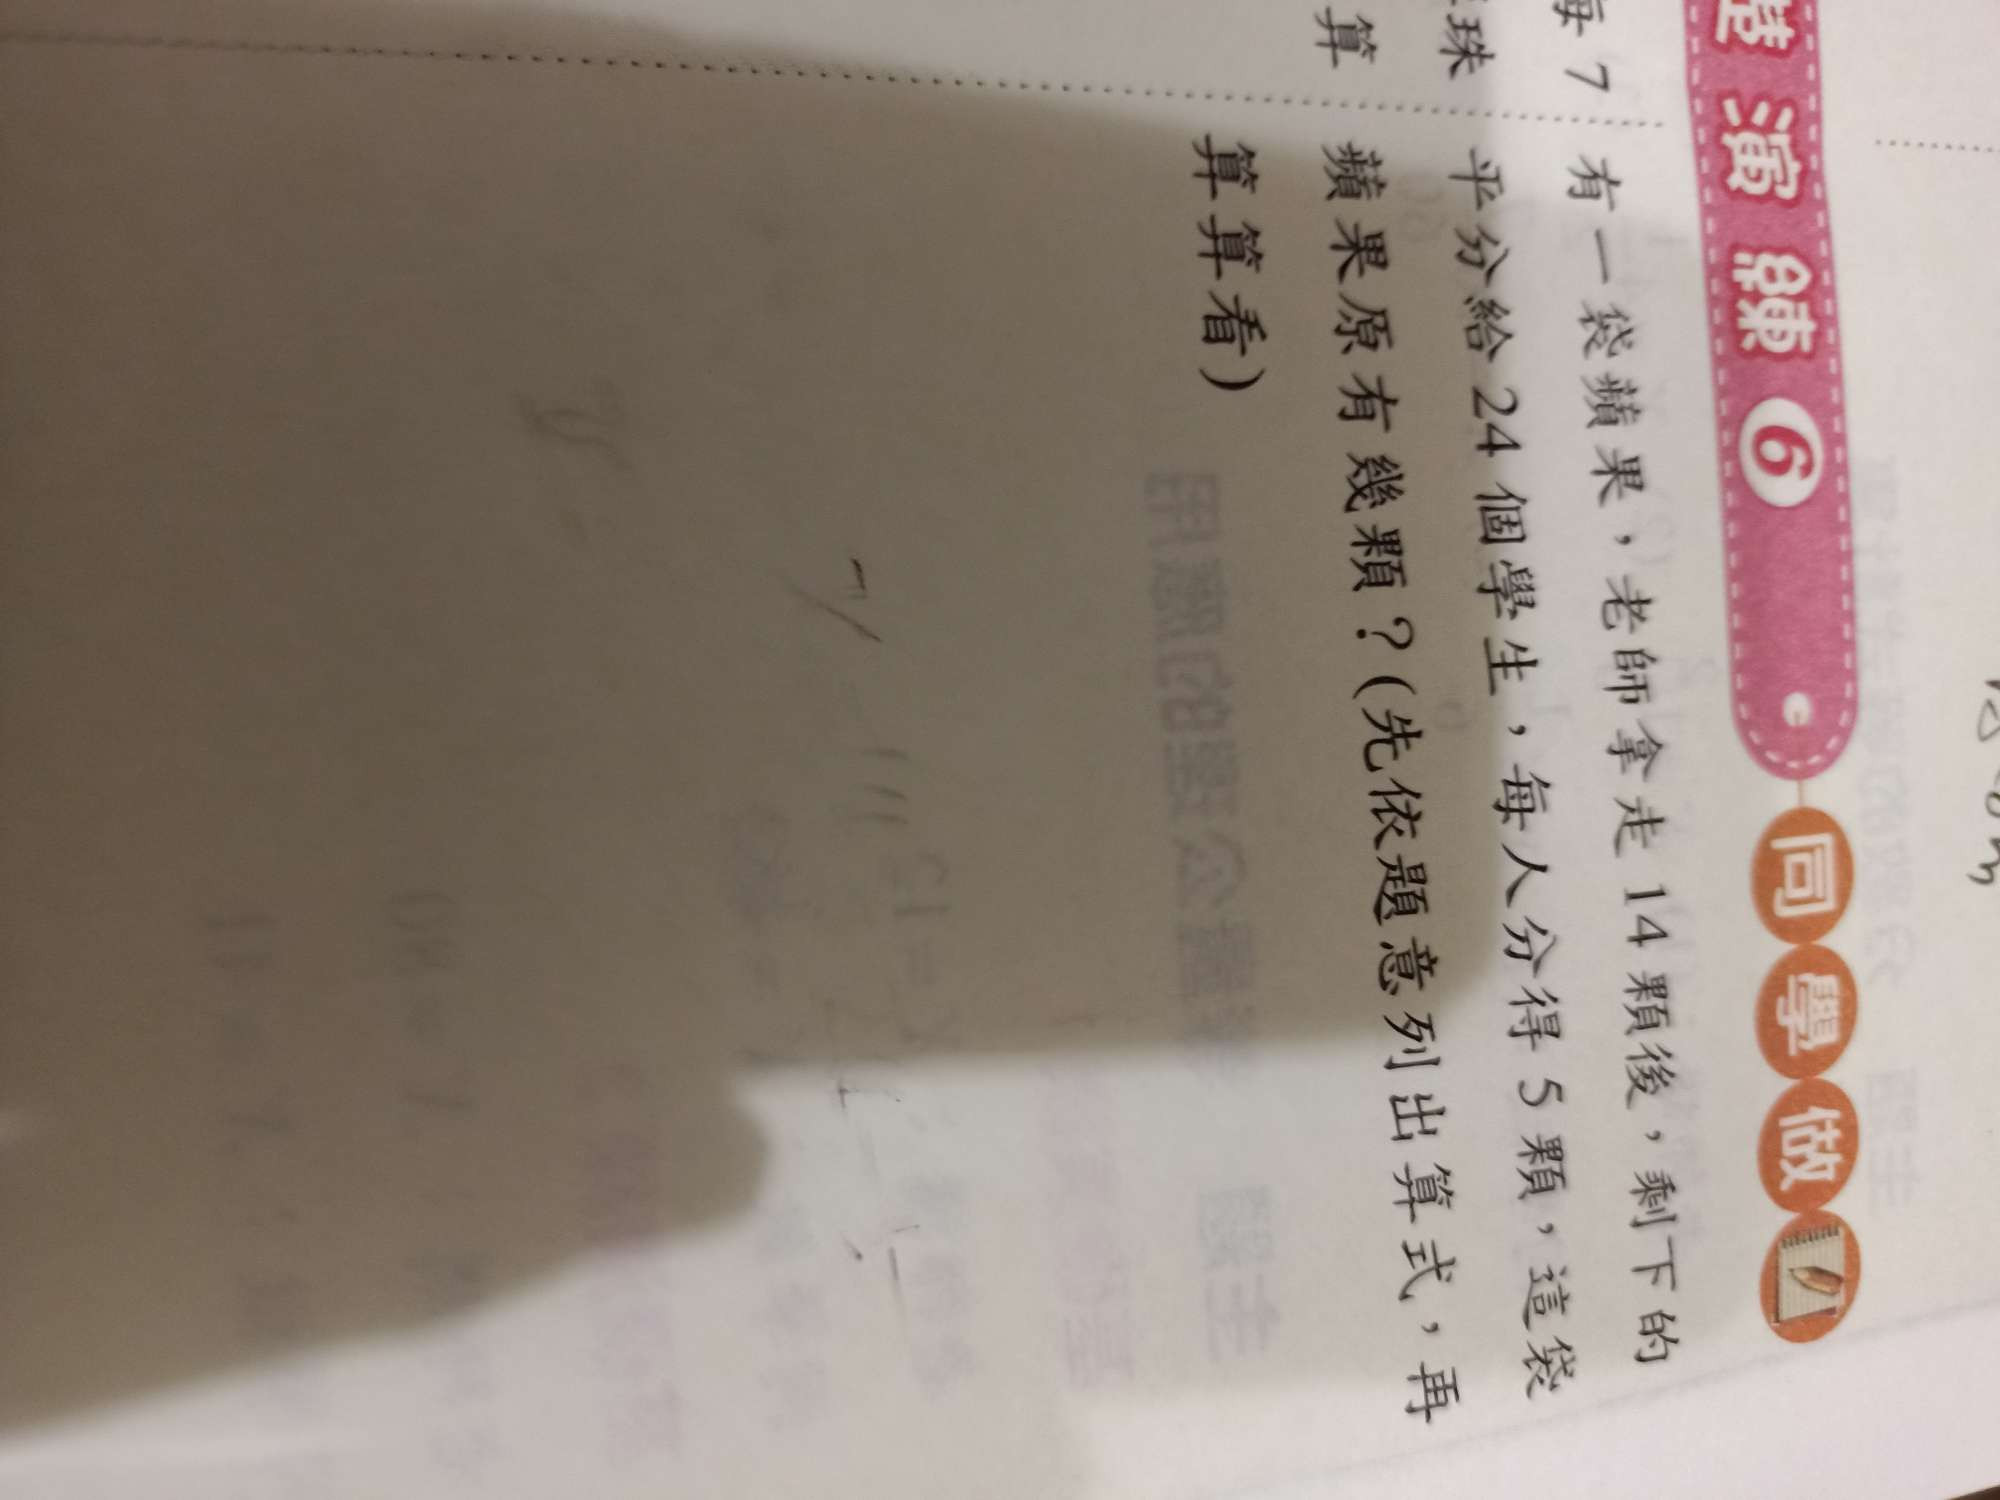 演練 6 同學做
每 7
珠
算
有一袋蘋果，老師拿走 14 顆後，剩下的
平分給 24 個學生，每人分得 5 顆，這袋
蘋果原有幾顆？(先依題意列出算式，再
算算看)